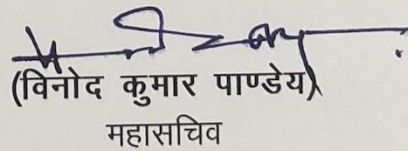 (विनोद कुमार पाण्डेय)
महासचिव